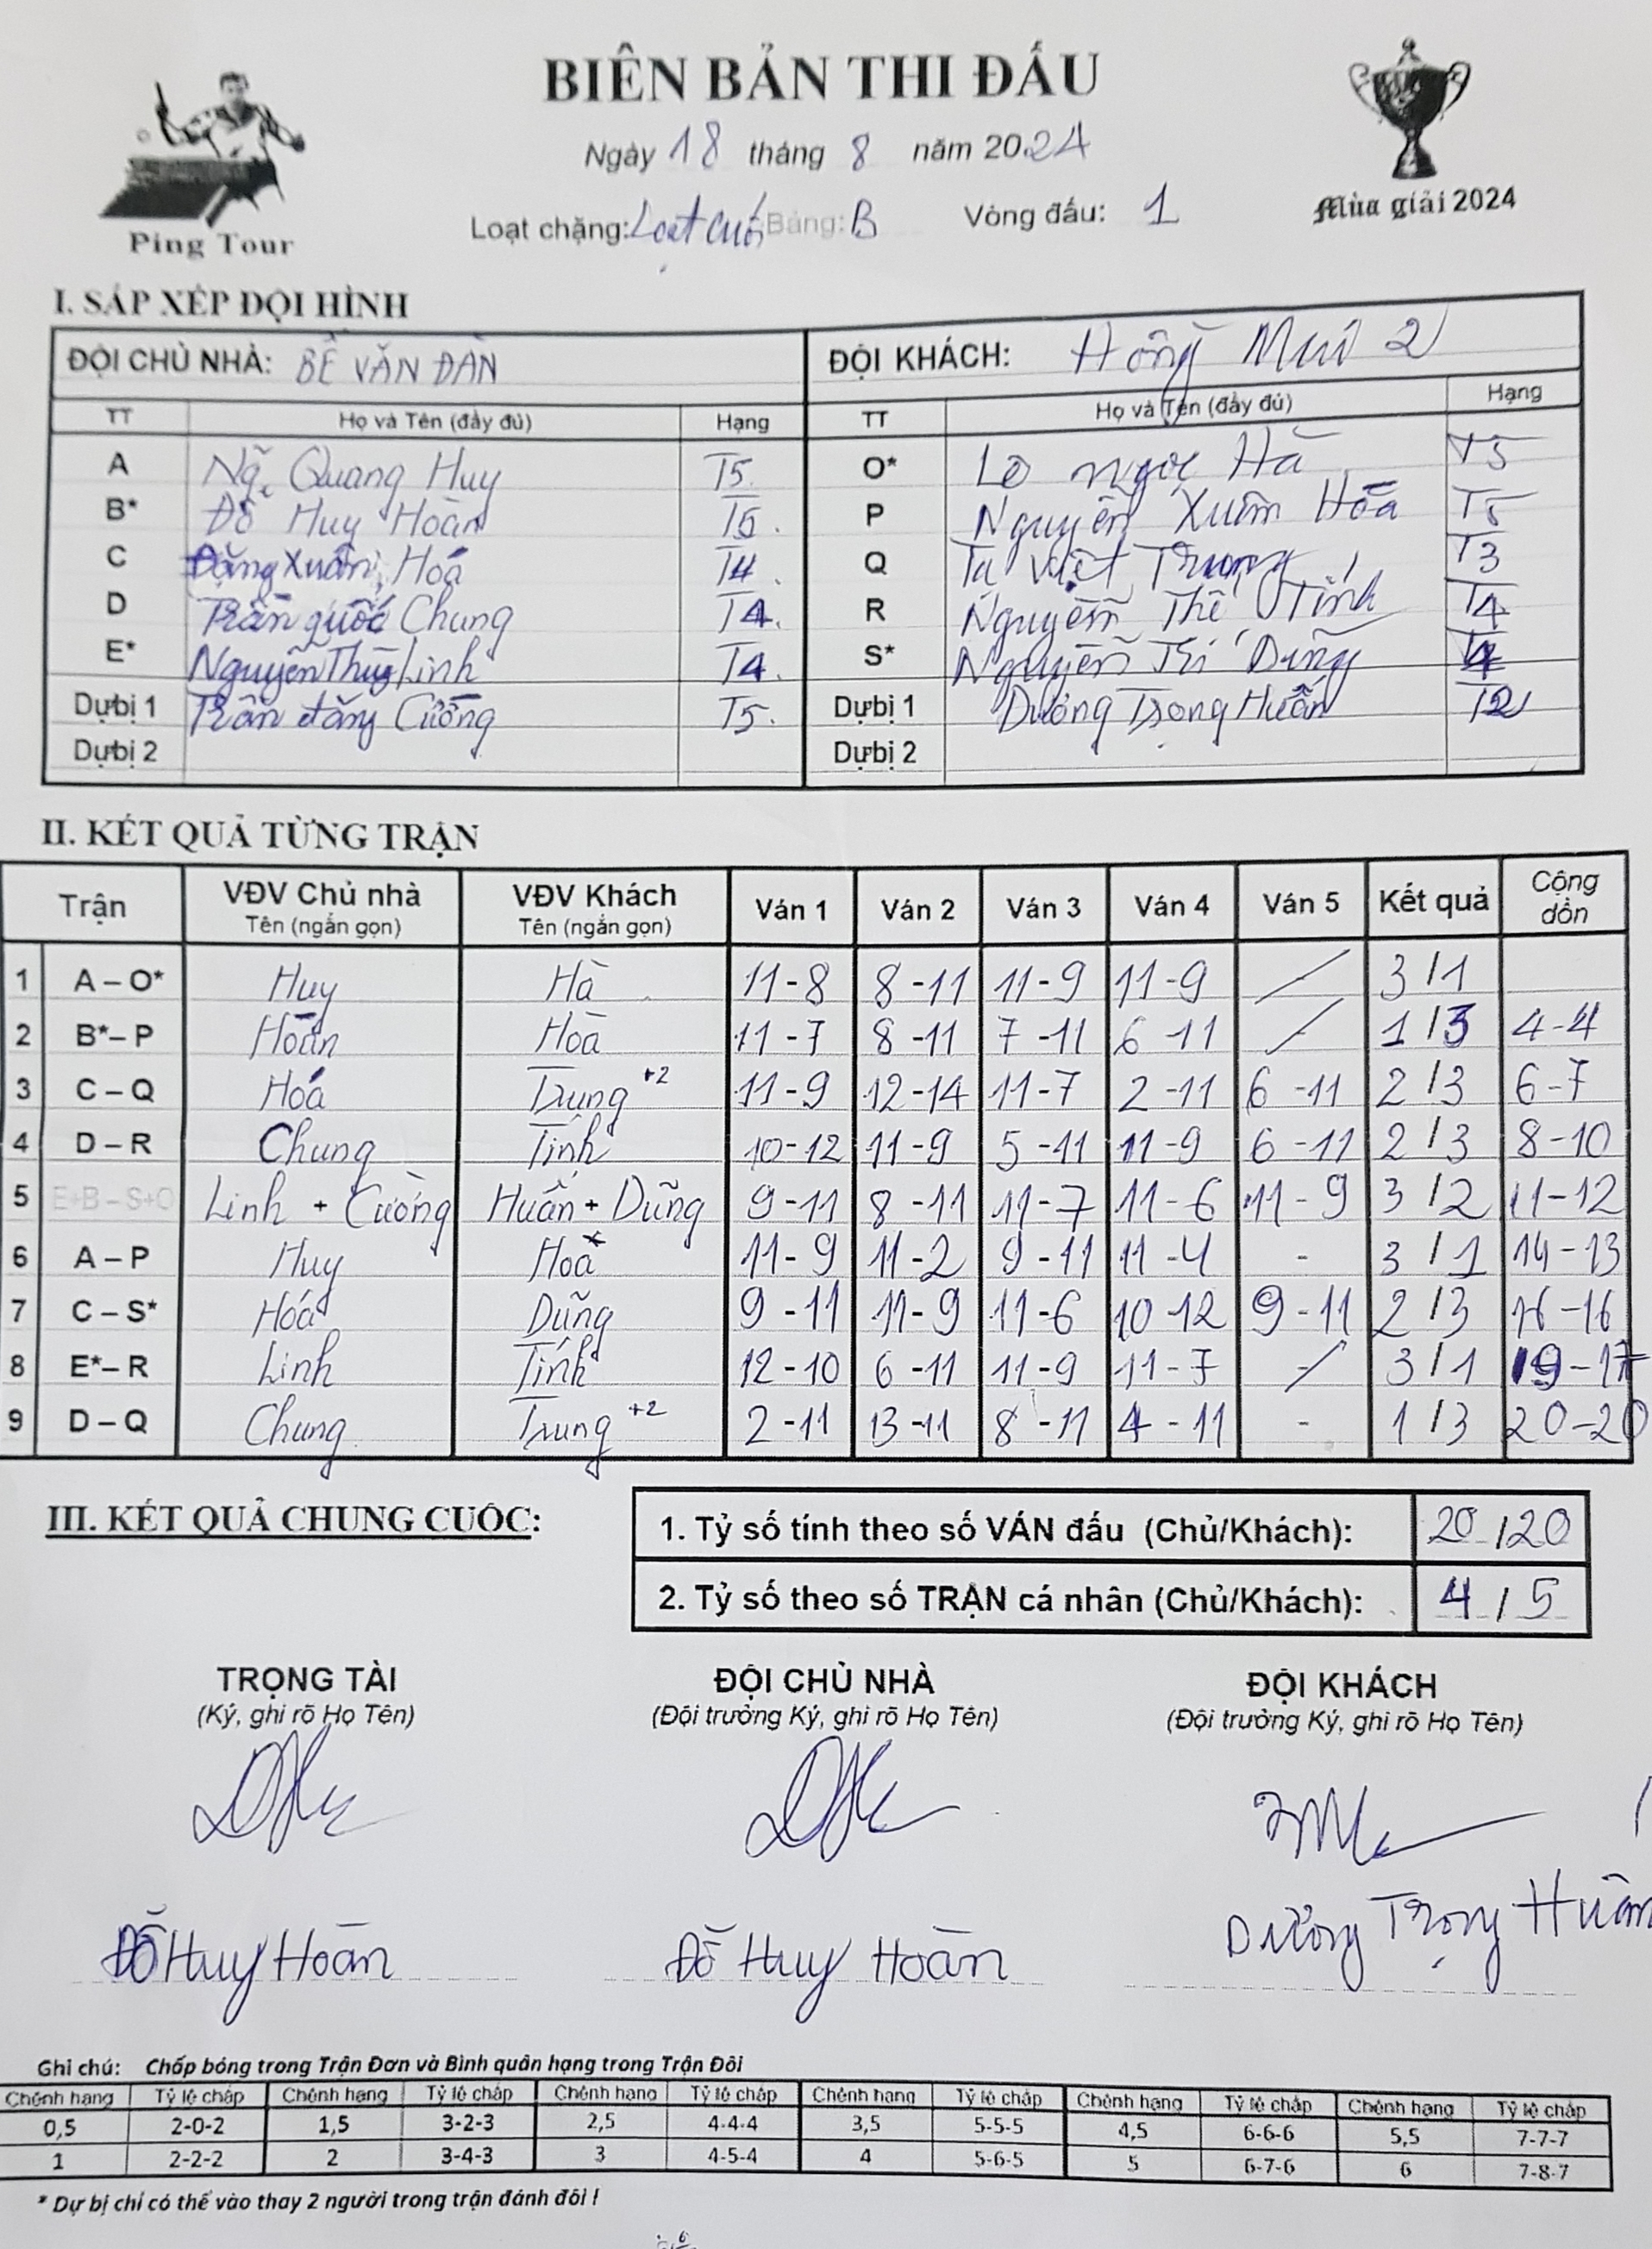 BIÊN BẢN THI ĐẤU
Ngày 18 tháng 8 năm 2024
Loạt chặng: Loạt cuối Bảng: B Vòng đấu: 1
Ping Tour
Mùa giải 2024
I. SẮP XẾP ĐỘI HÌNH
ĐỘI CHỦ NHÀ: BẾ VĂN ĐÀN ĐỘI KHÁCH: Hồng Mui 2
TT Họ và Tên (đầy đủ) Hạng TT Họ và Tên (đầy đủ) Hạng
A Ng. Quang Huy T5 O* Lê ngọc Hà T5
B* Đỗ Huy Hoàn T5. P Nguyễn Xuân Hòa T5
C Đặng Xuân Hoá T4. Q Tạ Việt Trung T3
D Trần quốc Chung T4. R Nguyễn Thế Tính T4
E* Nguyễn Thùy Linh T4. S* Nguyễn Trí Dũng T4
Dự bị 1 Trần đăng Cường T5. Dự bị 1 Dương Trọng Huấn T2
Dự bị 2 Dự bị 2
II. KẾT QUẢ TỪNG TRẬN
Trận VĐV Chủ nhà VĐV Khách Ván 1 Ván 2 Ván 3 Ván 4 Ván 5 Kết quả Cộng dồn
Tên (ngắn gọn) Tên (ngắn gọn)
1 A – O* Huy Hà 11-8 8-11 11-9 11-9 / 3/1
2 B*– P Hoàn Hoà 11-7 8-11 7-11 6-11 / 1/3 4-4
3 C – Q Hoá Trung +2 11-9 12-14 11-7 2-11 6-11 2/3 6-7
4 D – R Chung Tính 10-12 11-9 5-11 11-9 6-11 2/3 8-10
5 E+B – S+O Linh + Cường Huấn + Dũng 9-11 8-11 11-7 11-6 11-9 3/2 11-12
6 A – P Huy Hoà 11-9 11-2 9-11 11-4 - 3/1 14-13
7 C – S* Hoá Dũng 9-11 11-9 11-6 10-12 9-11 2/3 16-16
8 E*– R Linh Tính 12-10 6-11 11-9 11-7 / 3/1 19-17
9 D – Q Chung Trung +2 2-11 13-11 8-11 4-11 - 1/3 20-20
III. KẾT QUẢ CHUNG CUỘC:
1. Tỷ số tính theo số VÁN đấu (Chủ/Khách): 20/20
2. Tỷ số theo số TRẬN cá nhân (Chủ/Khách): 4/5
TRỌNG TÀI ĐỘI CHỦ NHÀ ĐỘI KHÁCH
(Ký, ghi rõ Họ Tên) (Đội trưởng Ký, ghi rõ Họ Tên) (Đội trưởng Ký, ghi rõ Họ Tên)
Đỗ Huy Hoàn Đỗ Huy Hoàn Dương Trọng Huấn
Ghi chú: Chấp bóng trong Trận Đơn và Bình quân hạng trong Trận Đôi
Chênh hạng Tỷ lệ chấp Chênh hạng Tỷ lệ chấp Chênh hạng Tỷ lệ chấp Chênh hạng Tỷ lệ chấp Chênh hạng Tỷ lệ chấp Chênh hạng Tỷ lệ chấp
0,5 2-0-2 1,5 3-2-3 2,5 4-4-4 3,5 5-5-5 4,5 6-6-6 5,5 7-7-7
1 2-2-2 2 3-4-3 3 4-5-4 4 5-6-5 5 6-7-6 6 7-8-7
* Dự bị chỉ có thể vào thay 2 người trong trận đánh đôi !